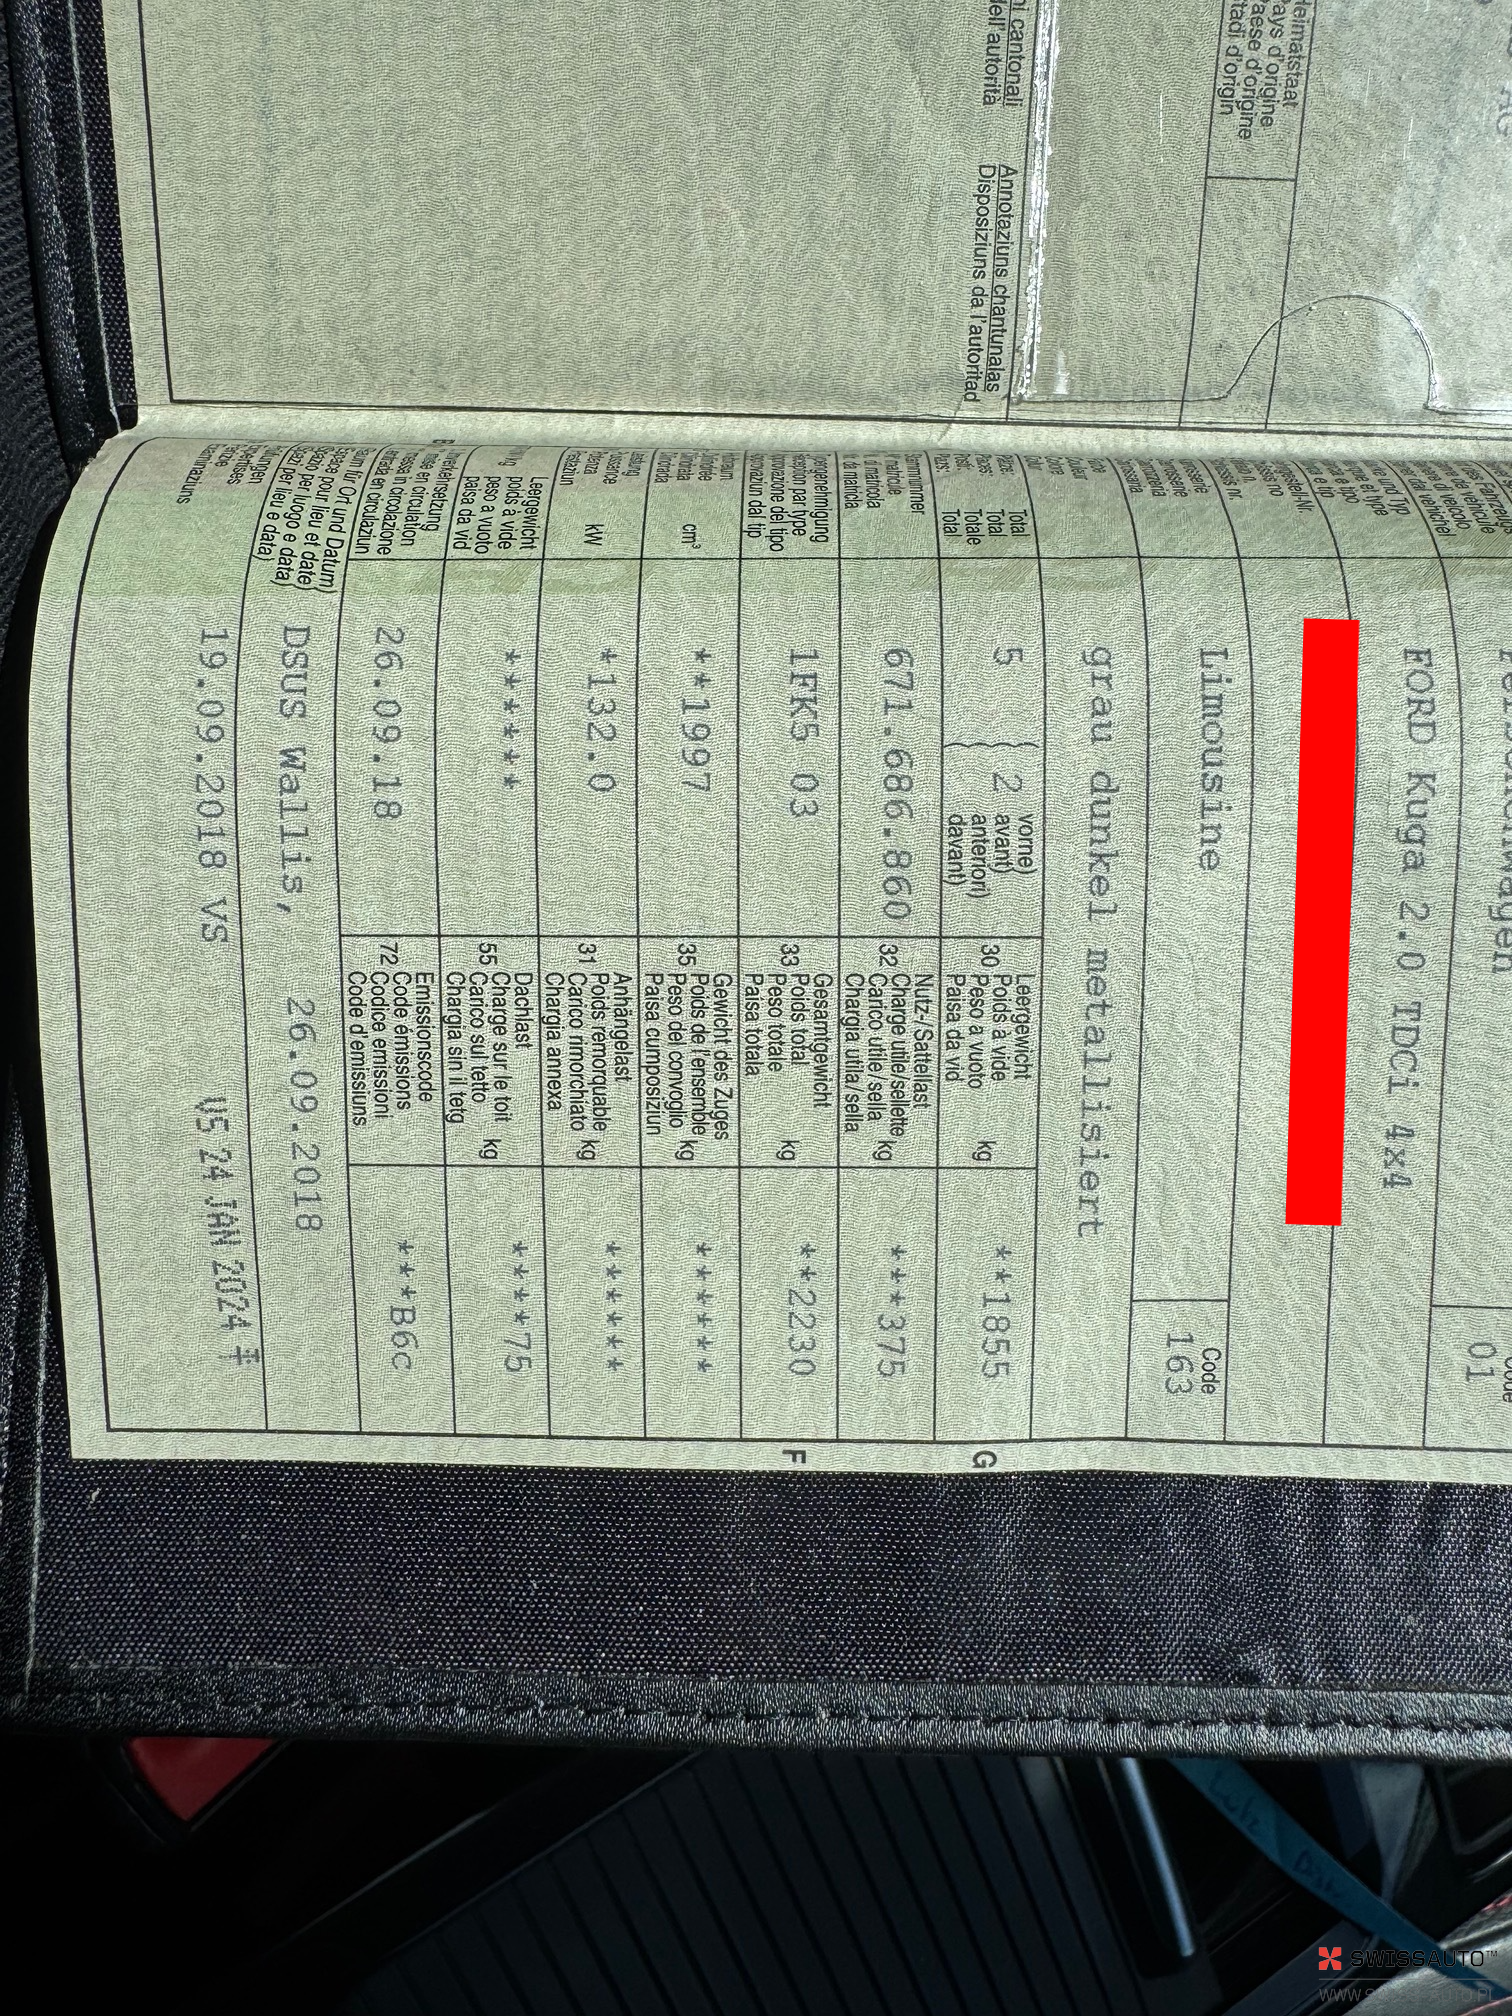 ni cantonali
dell'autorità
Annotaziuns chantunalas
Disposiziuns da l'autoritad
Heimatstaat
Pays d'origine
Paese d'origine
Stadi d'origin
01
FORD Kuga 2.0 TDCi 4x4
Limousine
Code
163
grau dunkel metallisiert
Total
Total
Totale
Total
5
2
vorne)
avant)
anteriori)
davant)
Leergewicht
30 Poids à vide
Peso a vuoto
Paisa da vid
kg
**1855
G
671.686.860
Nutz-/Sattellast
32 Charge utile/sellette
Carico utile/sella
Chargia utila/sella
kg
***375
1FK5 03
Gesamtgewicht
33 Poids total
Peso totale
Paisa totala
kg
**2230
F
cm³
**1997
Gewicht des Zuges
35 Poids de l'ensemble
Peso del convoglio
Paisa cumposiziun
kg
******
kW
*132.0
Anhängelast
31 Poids remorquable
Carico rimorchiato
Chargia annexa
kg
******
Leergewicht
poids à vide
peso a vuoto
paisa da vid
******
Dachlast
55 Charge sur le toit
Carico sul tetto
Chargia sin il tetg
kg
****75
26.09.18
Emissionscode
72 Code émissions
Codice emissioni
Code d'emissiuns
***B6c
für Ort und Datum)
pour lieu et date)
per luogo e data)
per lieu e data)
DSUS Wallis, 26.09.2018
19.09.2018 VS
VS 24 JAN 2024
SWISSAUTO™